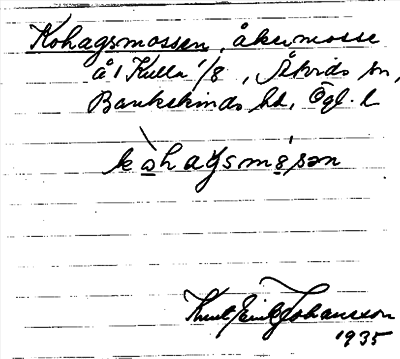 Kohagsmossen, åkermosse
å 1 Kulla 1/8, Åtvids sn,
Bankekinds hd, Ögl. l
kòhagsmósən
Knut Emil Johansson
1935